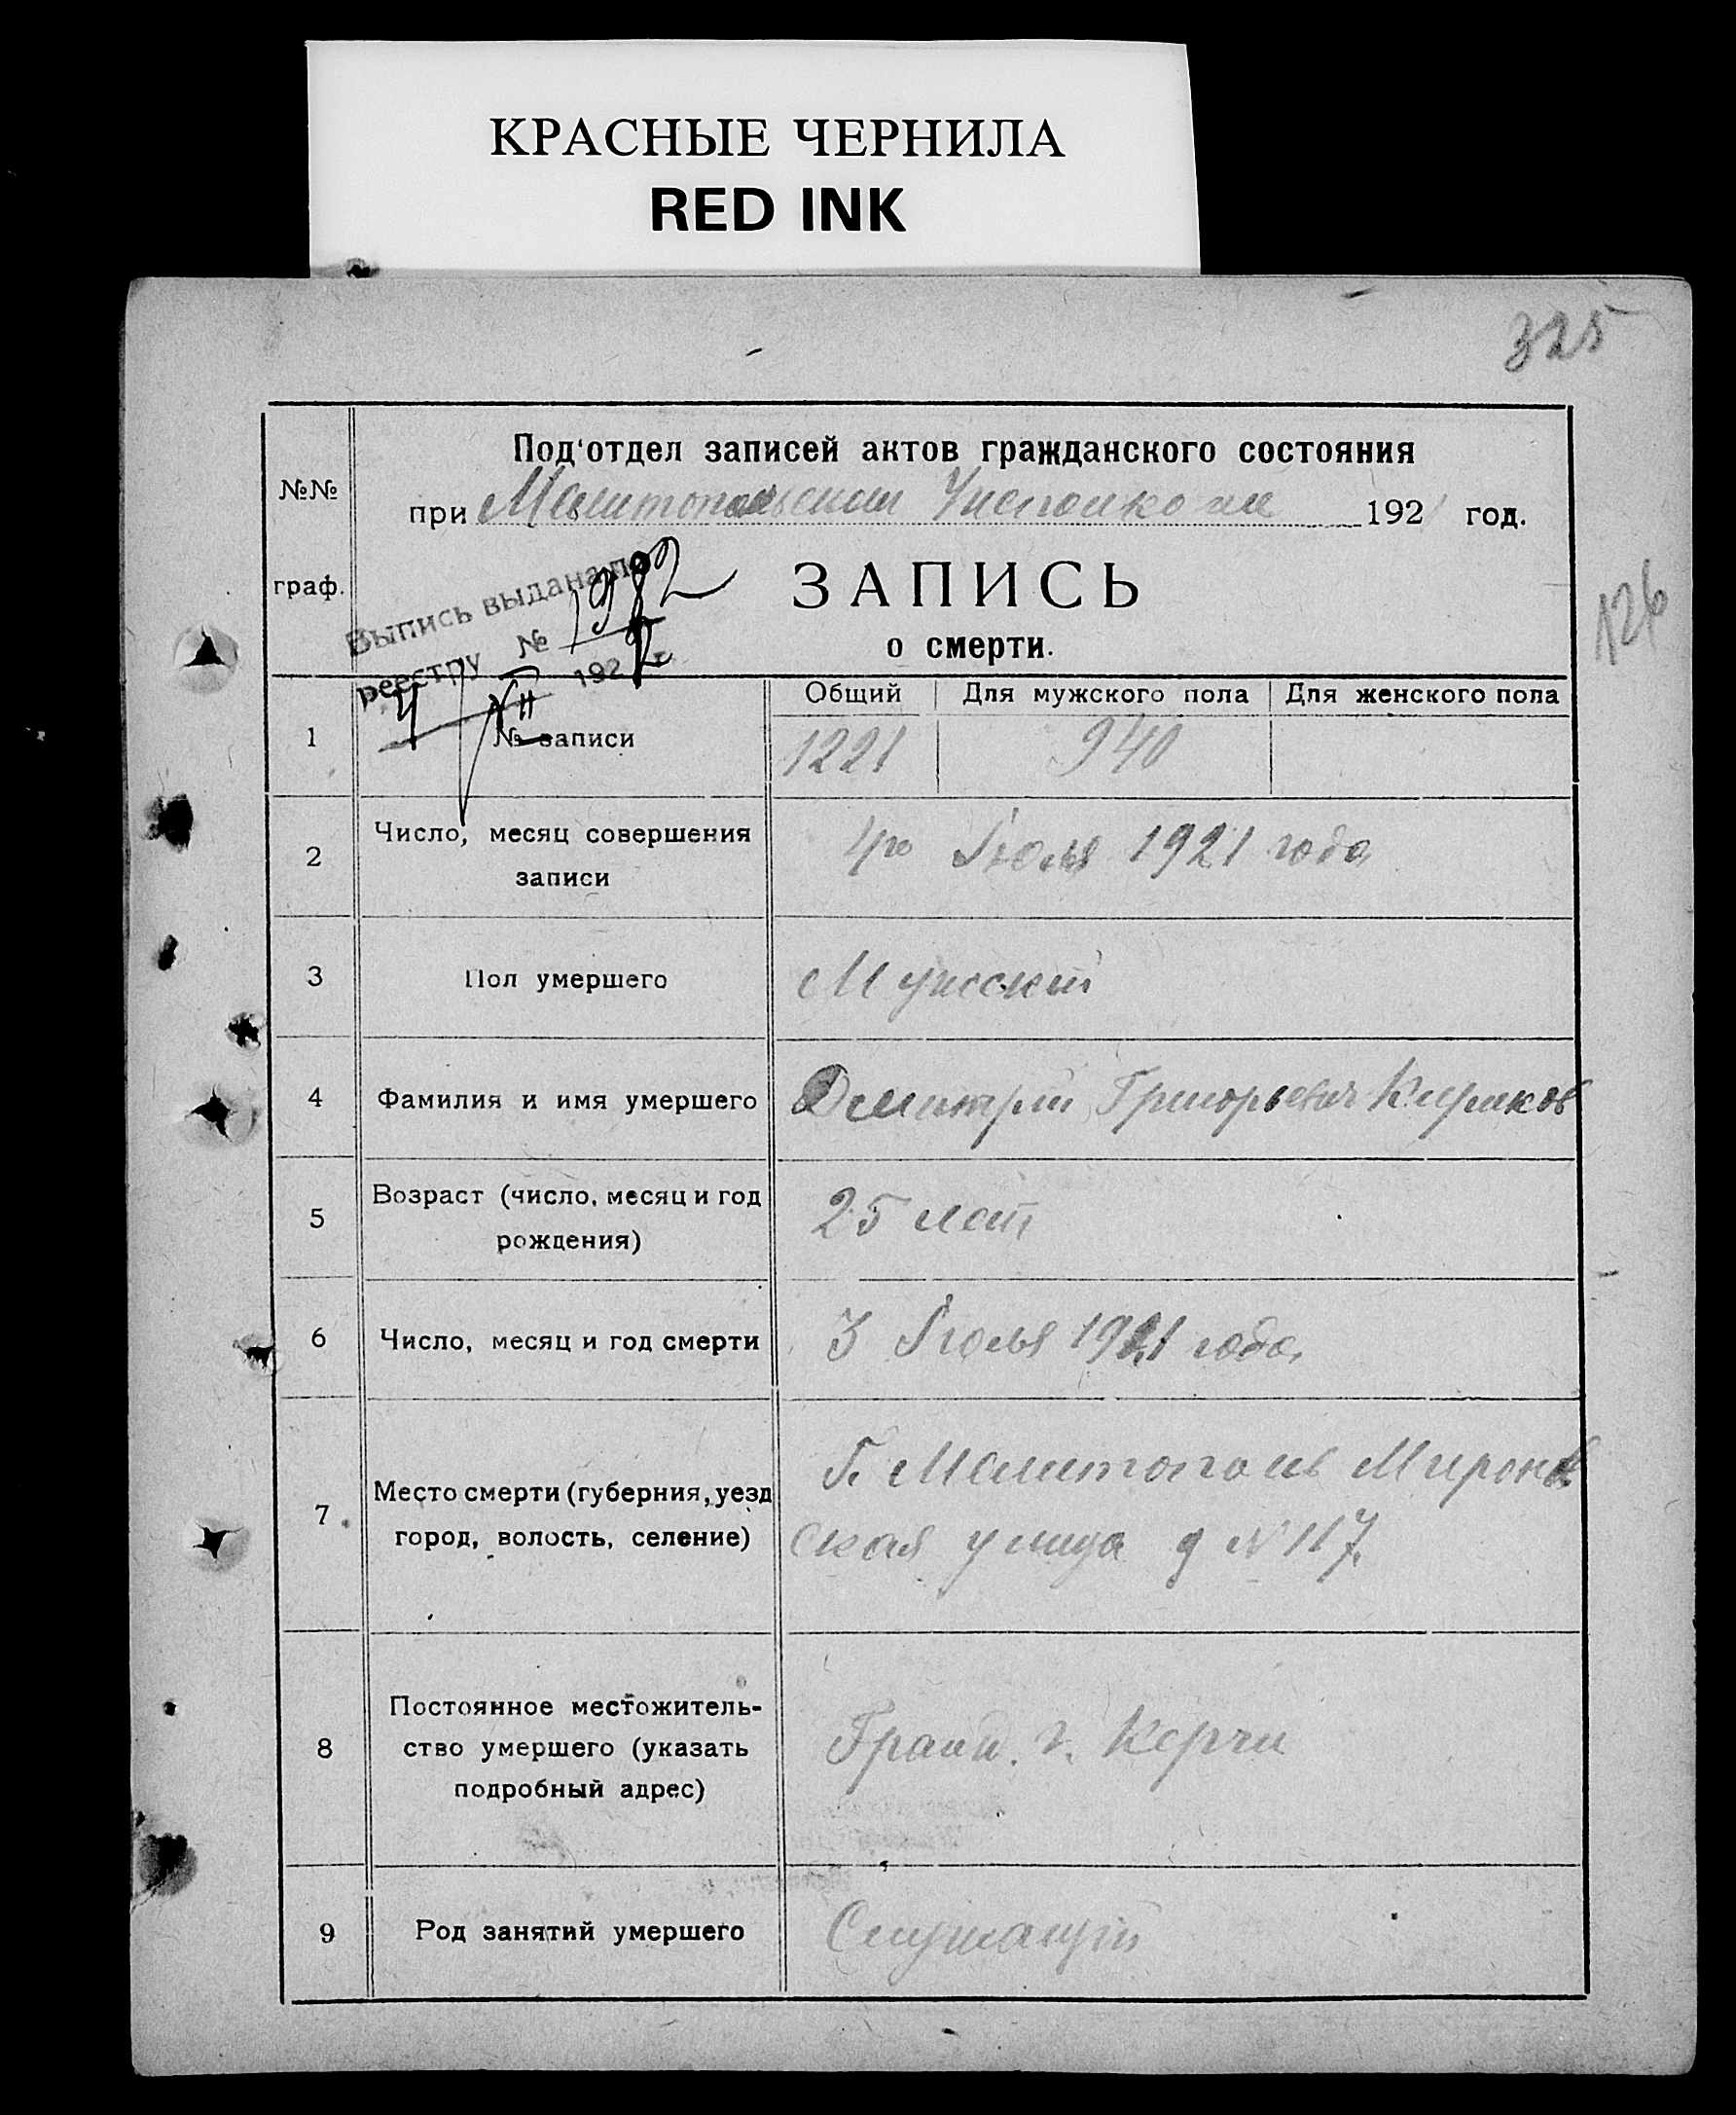 КРАСНЫЕ ЧЕРНИЛА
RED INK
325
№№
граф.
Под'отдел записей актов гражданского состояния
при Мелитопольском Уисполкоме 192 год.
Выпись выдана по
реестру № 1982
192 2 г.
ЗАПИСЬ
о смерти.
126
Общий Для мужского пола Для женского пола
1 № записи 1221 940
2 Число, месяц совершения
записи
4го Июля 1921 года
3 Пол умершего Мужской
4 Фамилия и имя умершего Дмитрий Григорьевич Кириков
5 Возраст (число, месяц и год
рождения)
25 лет
6 Число, месяц и год смерти 3 Июля 1921 года
7 Место смерти (губерния, уезд
город, волость, селение)
Г. Мелитополь Миронов
ская улица д № 117.
8 Постоянное местожитель-
ство умершего (указать
подробный адрес)
Гражд. г. Керчи
9 Род занятий умершего Служащий